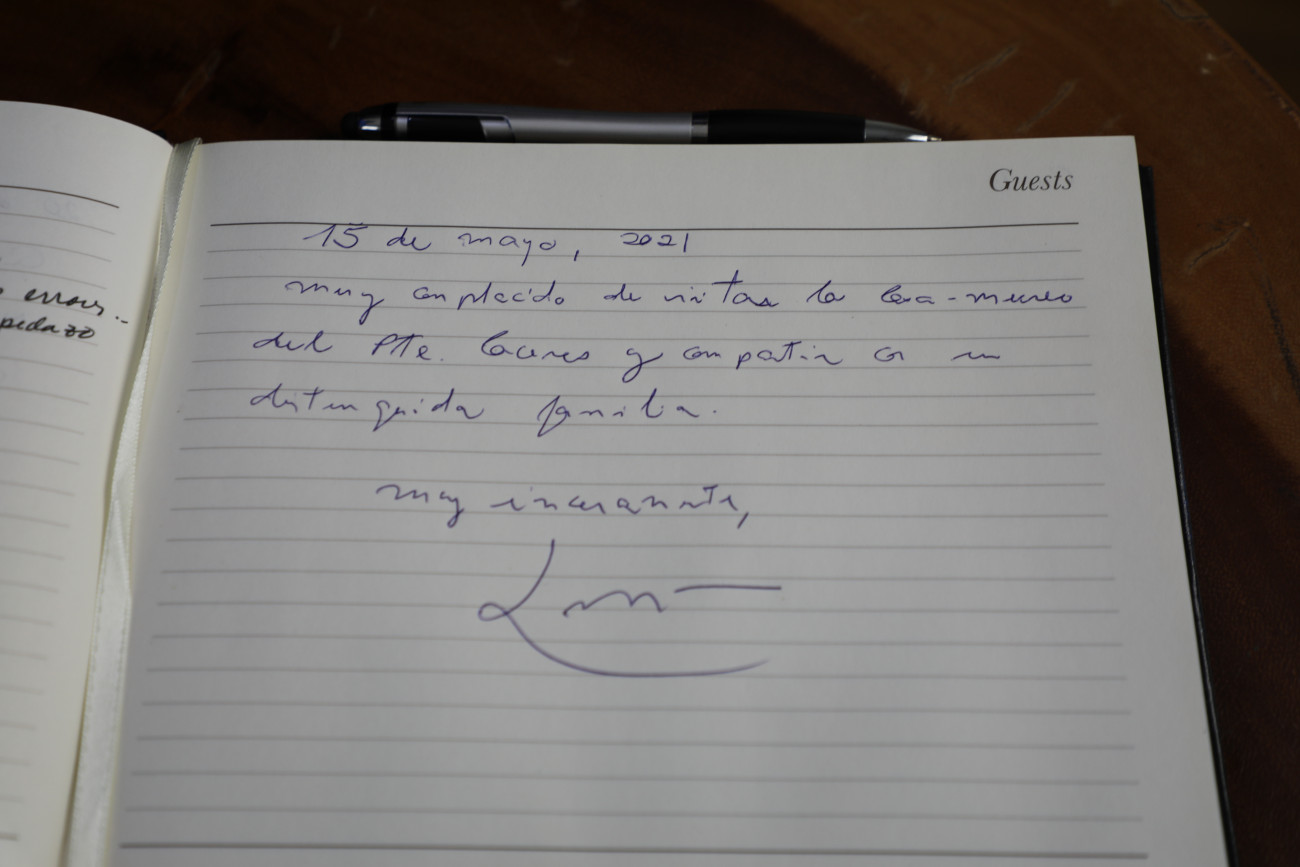 Guests
15 de mayo, 2021
muy complacido de visitar la Casa-museo
del Pte. Cáceres y compartir con su
distinguida familia.
muy sinceramente,
errors..
pedazo